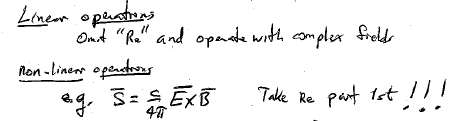 Linear operations
Omit "Re" and operate with complex fields
Non-linear operations
e.g. S̄ = c/4π Ē×B̄ Take Re part 1st !!!